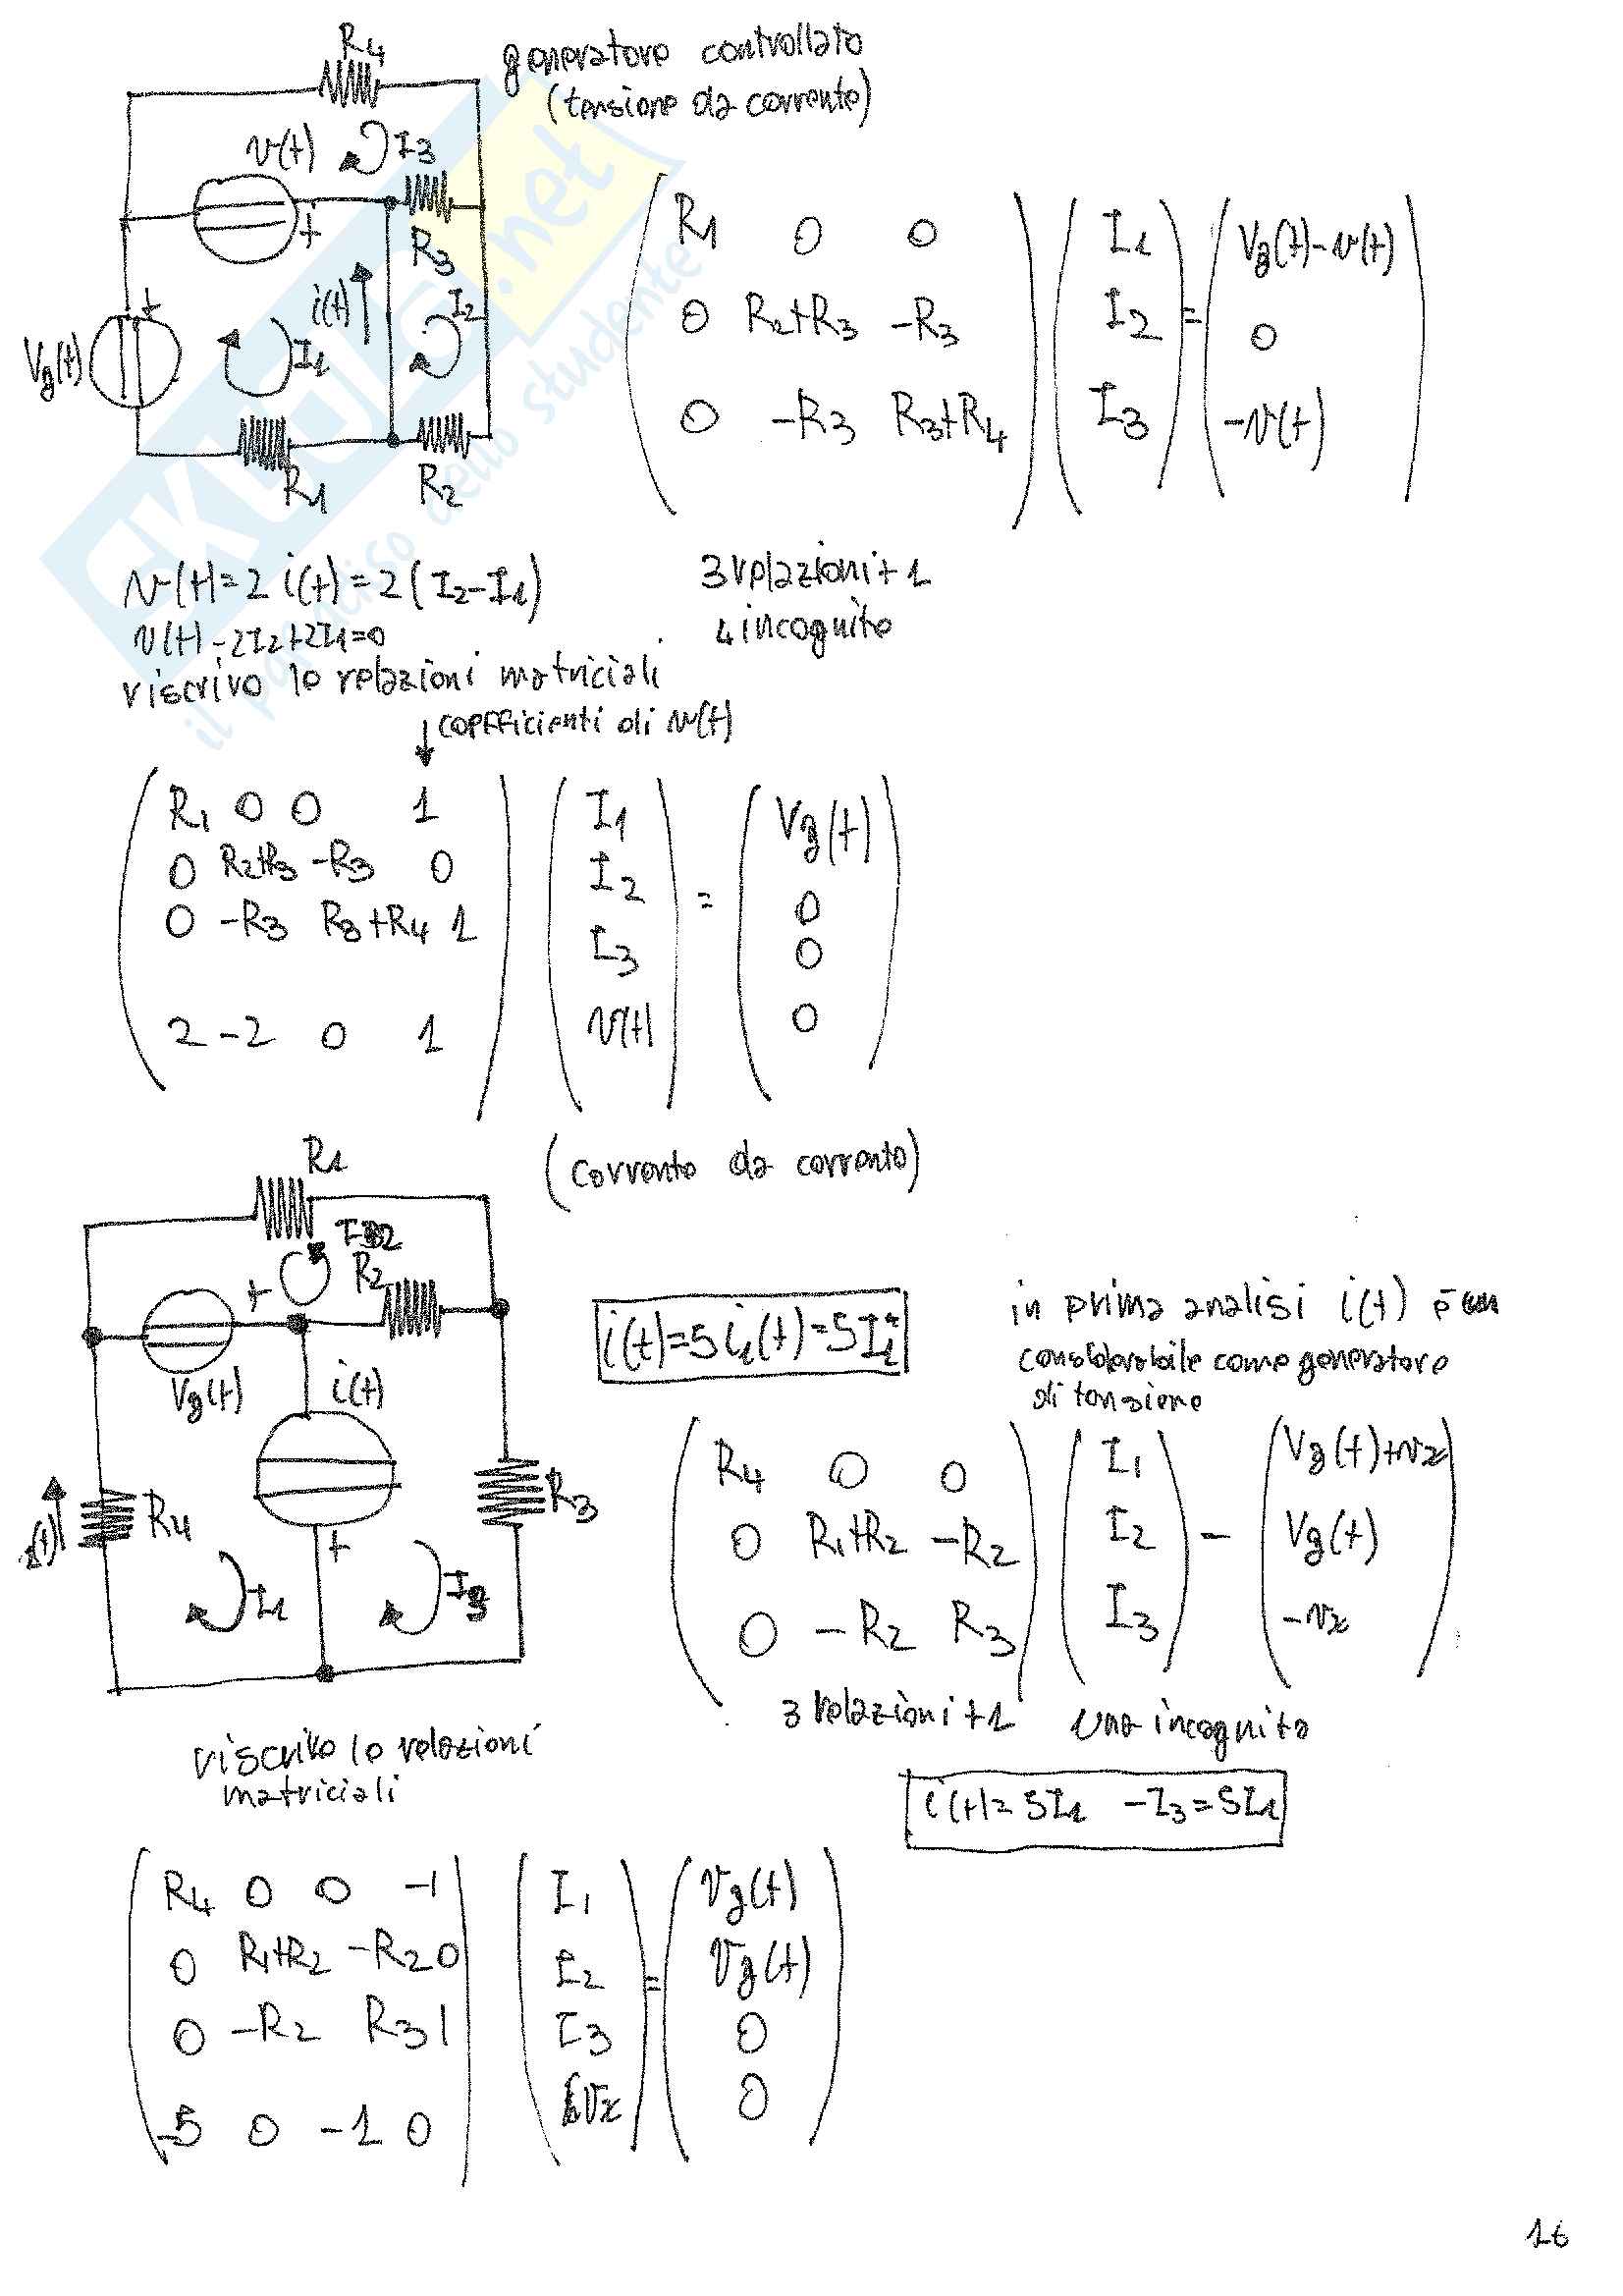 R4
generatore controllato
(tensione da corrente)
v(t)
I3
+
R3
i(t)
I2
+
Vg(t)
I1
R1
R2
R1 0 0
0 R2+R3 -R3
0 -R3 R3+R4
I1
I2
I3
=
Vg(t)-v(t)
0
-v(t)
v(t)=2 i(t)=2(I2-I1)
v(t)-2I2+2I1=0
3 relazioni+1
4 incognite
riscrivo le relazioni matriciali
↓coefficienti di v(t)
R1 0 0 1
0 R2+R3 -R3 0
0 -R3 R3+R4 1
2 -2 0 1
I1
I2
I3
v(t)
=
Vg(t)
0
0
0
(corrente da corrente)
R1
R2
+
Vg(t)
i(t)
R3
R4
+
I1
i(t)=5i1(t)=5I1
in prima analisi i(t) è
considerabile come generatore
di tensione
R4 0 0
0 R1+R2 -R2
0 -R2 R3
I1
I2
I3
Vg(t)+vx
Vg(t)
-vx
3 relazioni+1 una incognita
riscrivo le relazioni
matriciali
i(t)=5I1 -I3=5I1
R4 0 0 -1
0 R1+R2 -R2 0
0 -R2 R3 1
-5 0 -1 0
I1
I2
I3
Vx
=
Vg(t)
Vg(t)
0
0
16
.net
il paradiso dello studente